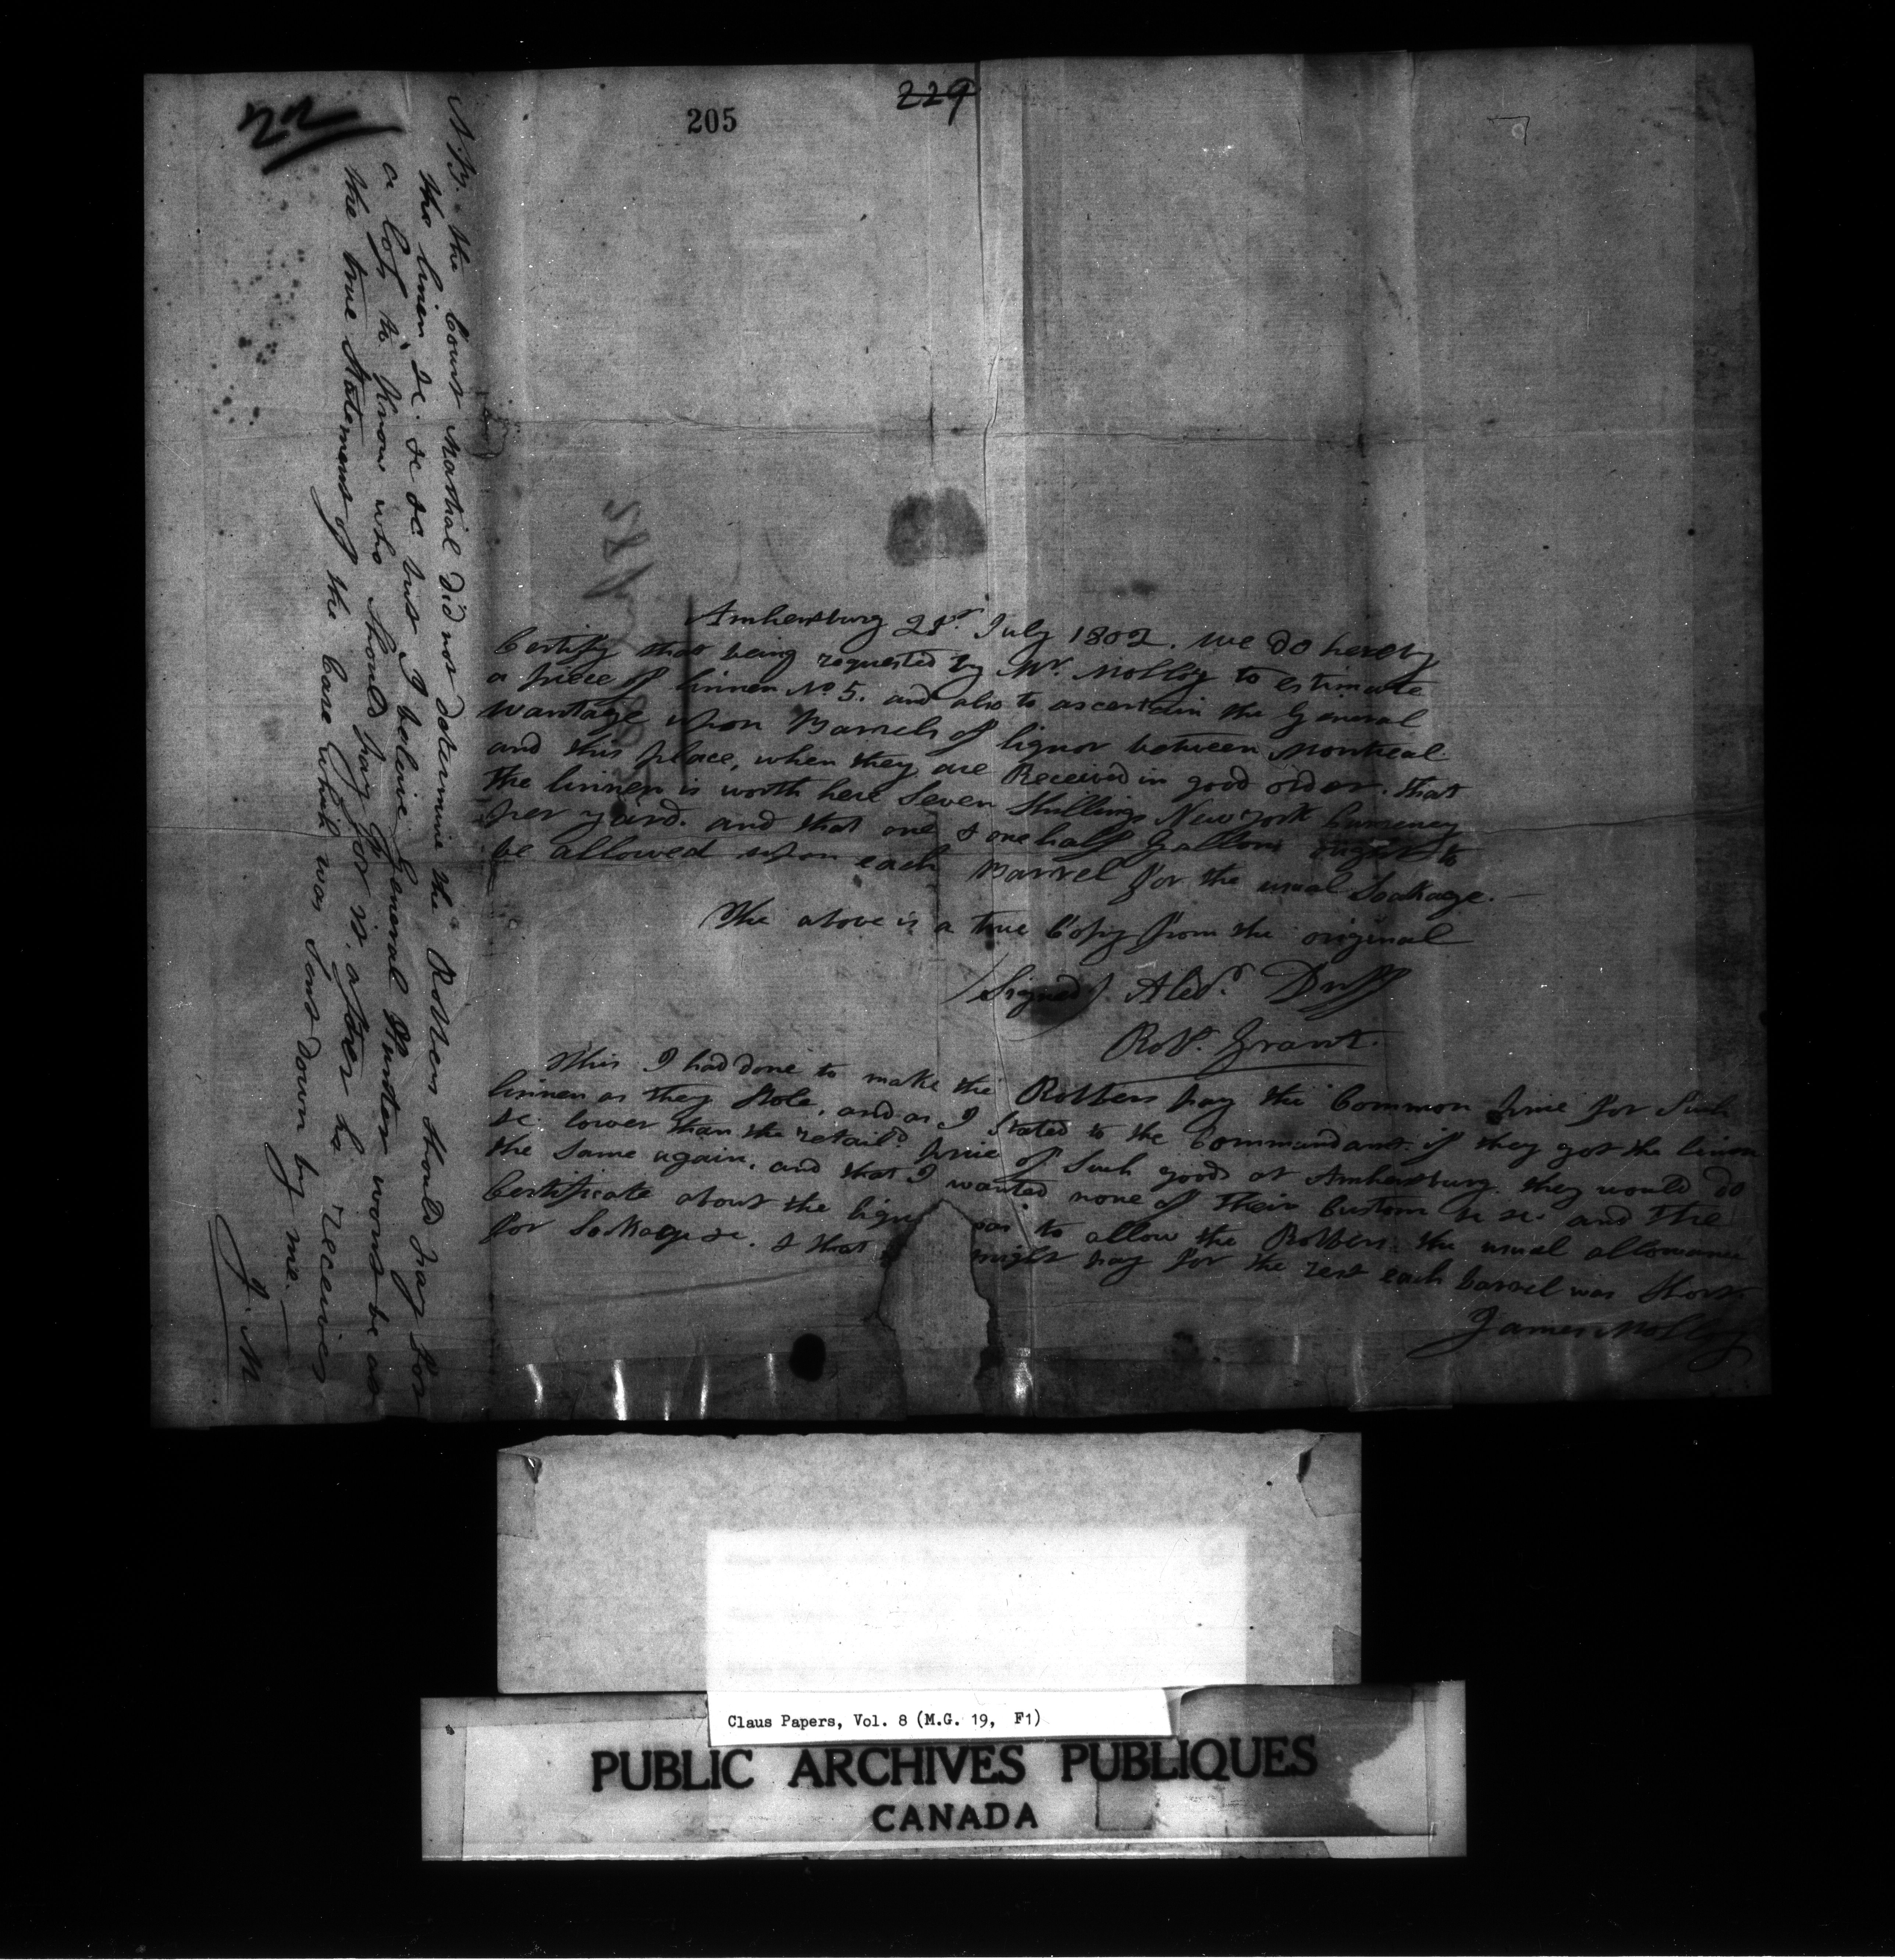 229
205
22
Amhersburg 21st July 1802. We do hereby
Certify that being requested by Mr. Molloy to estimate
a piece of linnen No 5. and also to ascertain the General
wantage upon Barrels of liquor between Montreal
and this place, when they are Received in good order. that
the linnen is worth here Seven Shillings New York Currency
per yard. and that one & one half Gallons ought to
be allowed upon each Barrel for the usual Soakage.
The above is a true Copy from the original
(Signed) Alexr. Duff
Robt. Grant.
This I had done to make the Robbers pay the Common price for Such
linnen as they Stole, and as I Stated to the Commandant. if they got the linnen
&c lower than the retaild price of Such goods at Amhersburg. they would do
the Same again, and that I wanted none of their Custom &c &c. and the
Certificate about the liqu was to allow the Robbers. the usual allowance
for Soakage &c. & that might pay for the rest each barrel was Short.
James Molloy
N.B. the Court Martial did not determine the Robbers Should pay for
the linen &c. &c &c. but I believe General Hunter wont be at
a loss to know who Should pay for it. after he receives
the true Statement of the Case which was Sent down by me.
J. M
Claus Papers, Vol. 8 (M.G. 19, F1)
PUBLIC ARCHIVES PUBLIQUES
CANADA